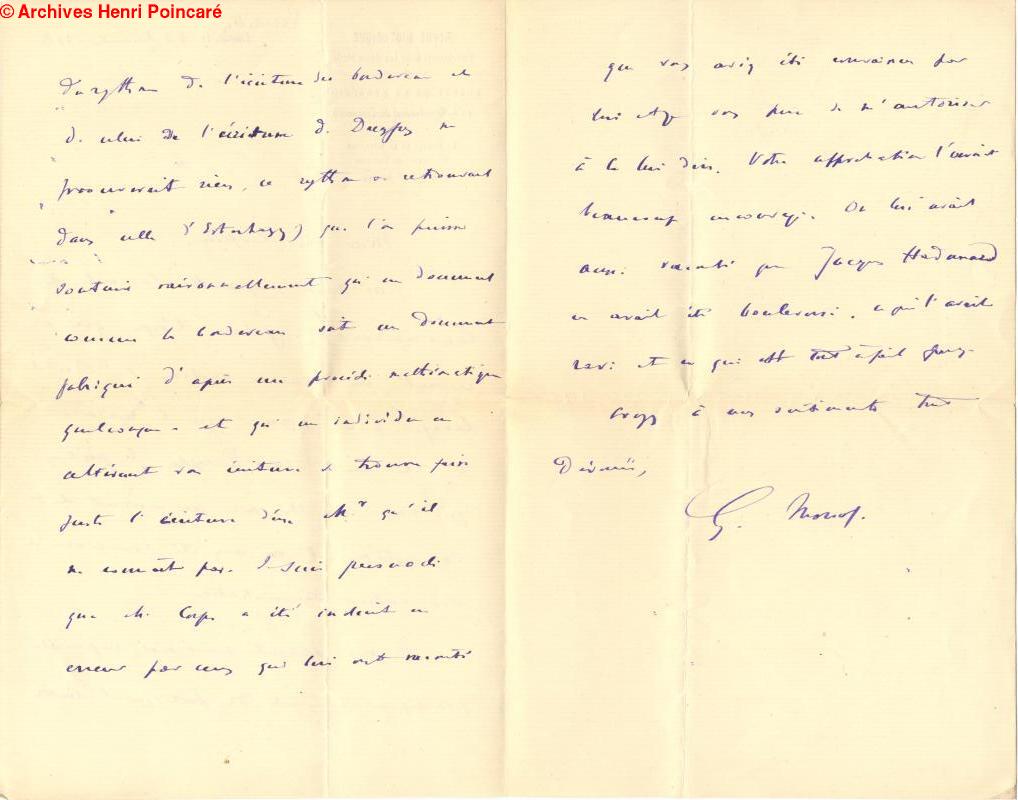 © Archives Henri Poincaré
du rythme de l'écriture du bordereau et
de celui de l'écriture de Dreyfus ne
prouverait rien, ce rythme se retrouvant
dans celle d'Esterhazy) que l'on puisse
soutenir raisonnablement qu'un document
comme le bordereau soit un document
fabriqué d'après un procédé mathématique
quelconque - et qu'un individu en
altérant son écriture se trouve faire
juste l'écriture d'un Mr qu'il
ne connait pas. Je suis persuadé
que M. Corps a été induit en
erreur par ceux qui lui ont raconté
que vous aviez été convaincu par
lui et je vous prie de m'autoriser
à le lui dire. Votre approbation l'avait
beaucoup encouragé. On lui avait
aussi raconté que Jacques Hadamard
en avait été bouleversé, ce qui l'avait
ravi et ce qui est tout à fait faux.
Croyez à mes sentiments tout
Dévoués,
G. Monod.